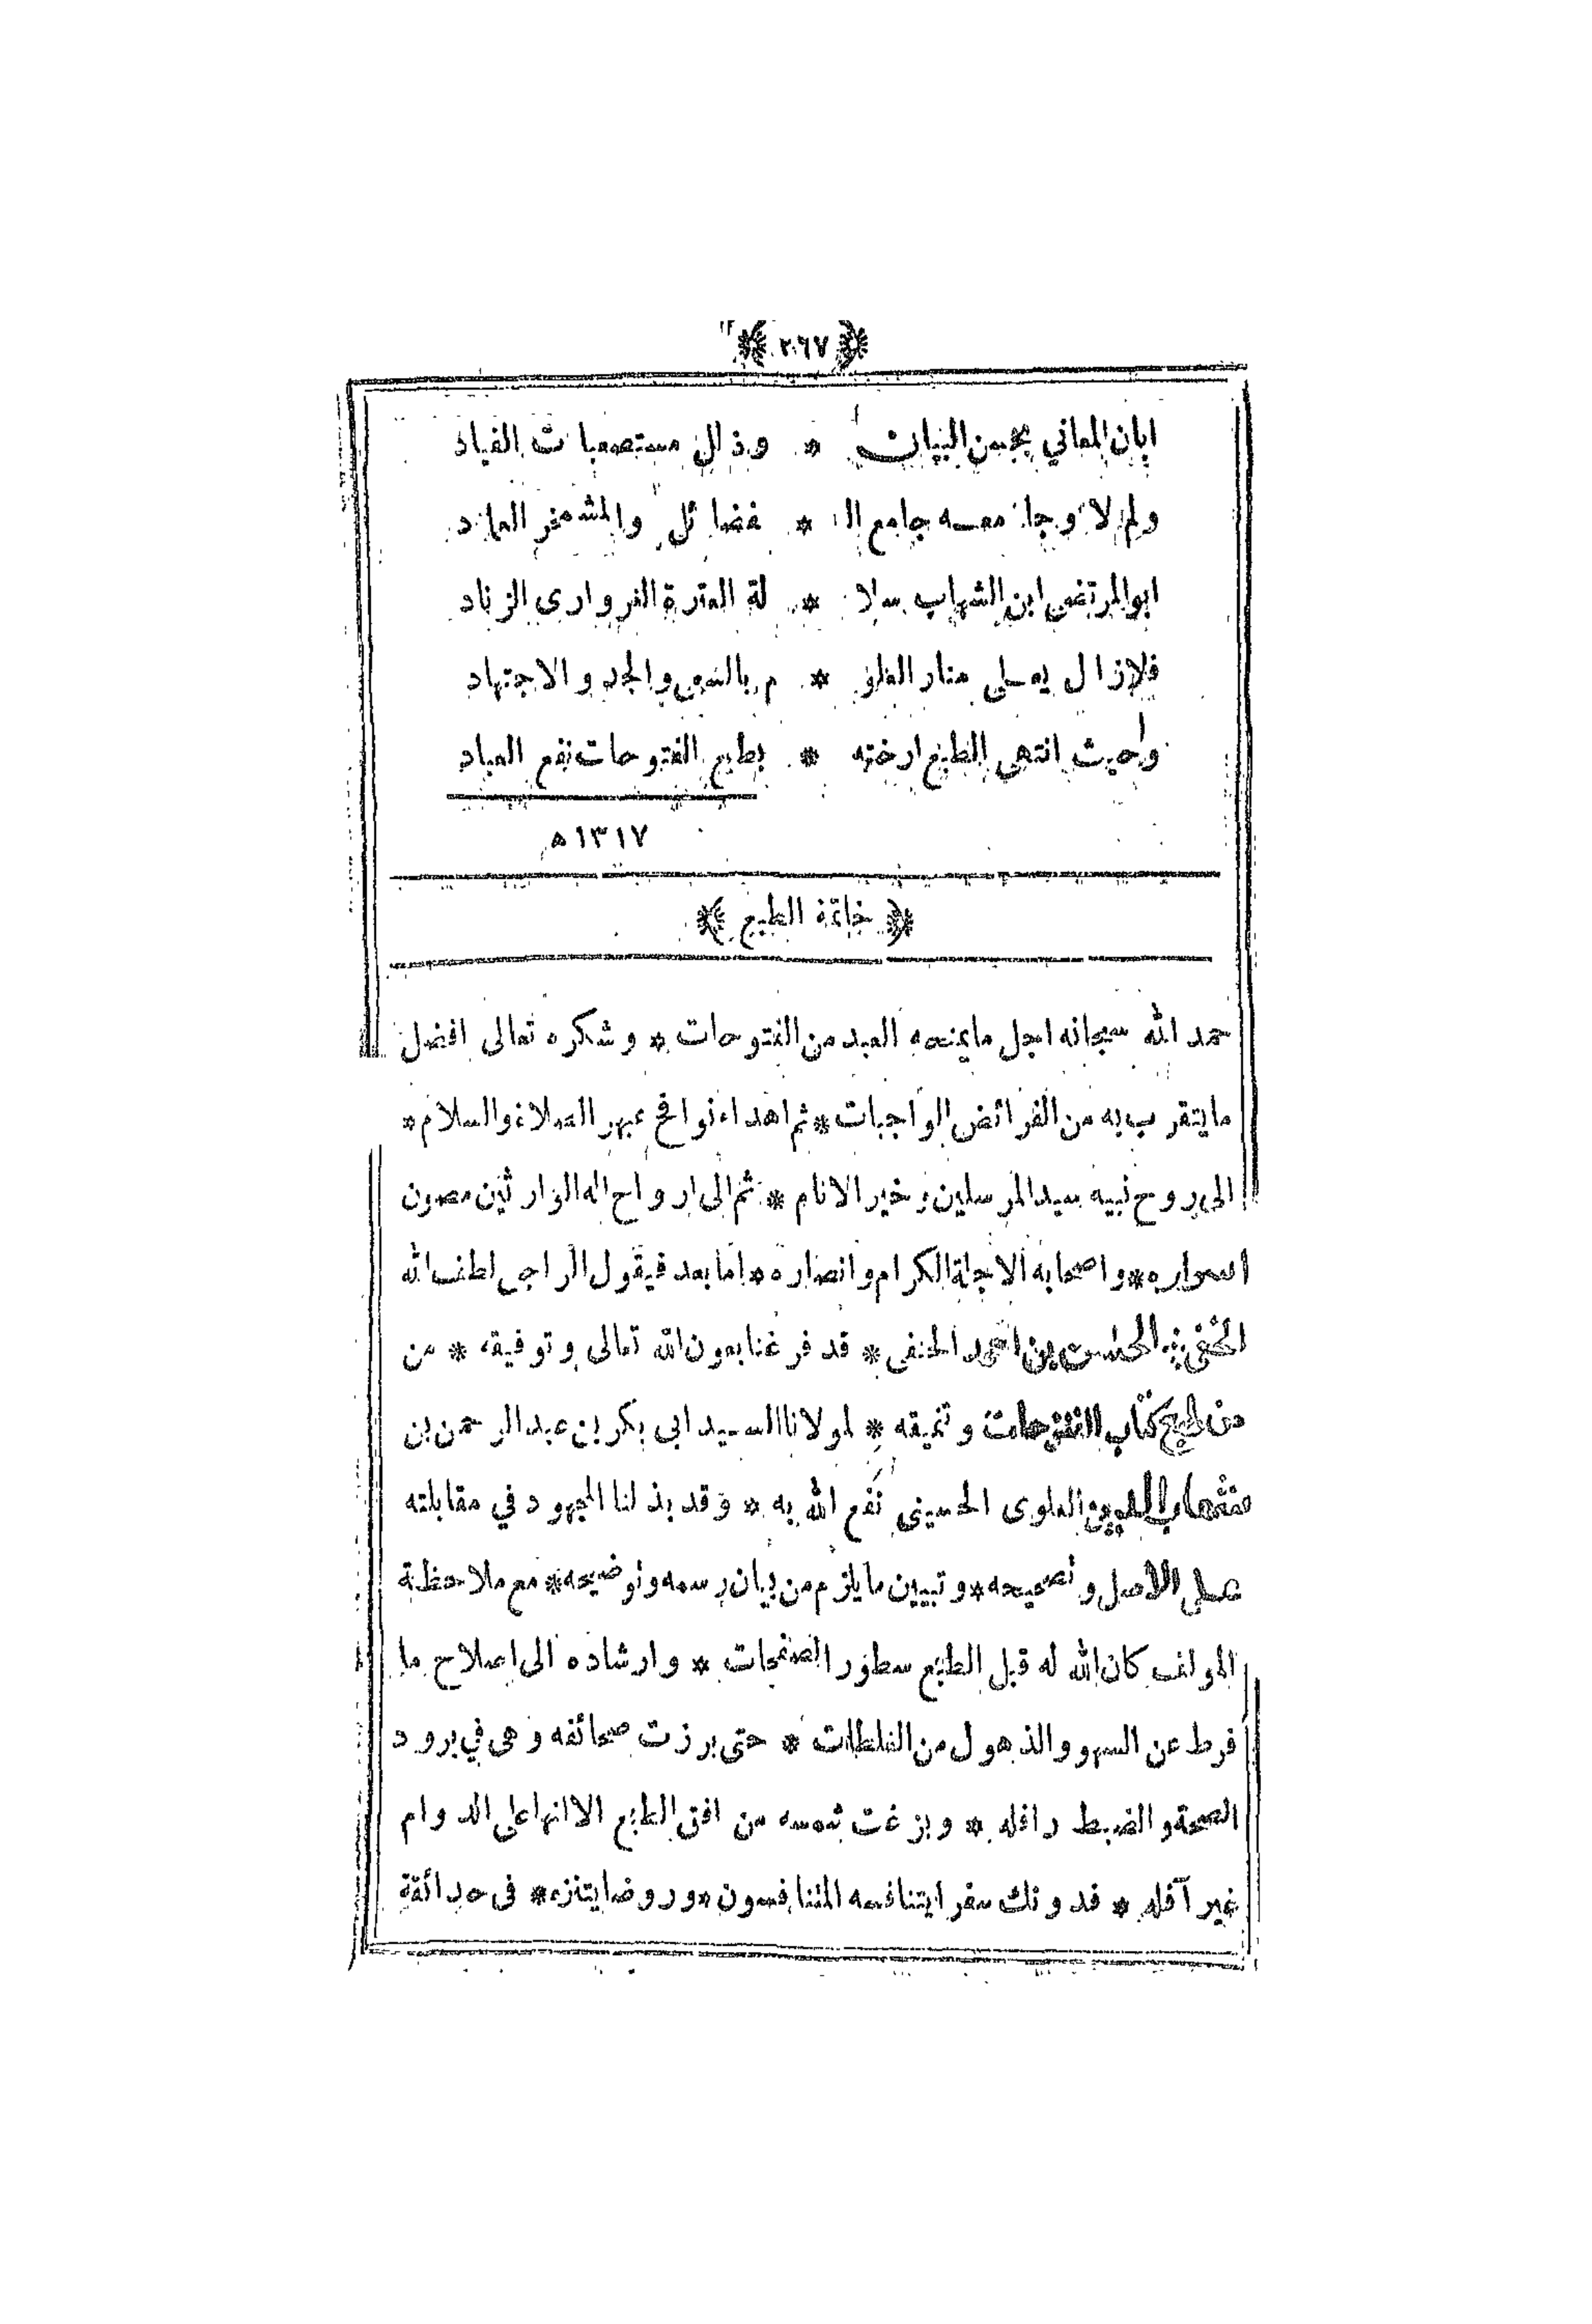 ﴿ ٢٦٧ ﴾
ابان المعاني بحسن البيان * وذلل مستصعبات القياد
ولم لا وجامعه جامع ال * فضائل والمشمخر العماد
ابوالمرتضى ابن الشهاب سلا * لة العترة الغر وارى الزناد
فلازال يعلى منار العلو * م بالسعى والجد والاجتهاد
واحيث انتهى الطبع ارخته * بطبع الفتوحات نفع العباد
١٣١٧ ه
﴿ خاتمة الطبع ﴾
حمد الله سبحانه اجل ما يمنحه العبد من الفتوحات * وشكره تعالى افضل
ما يتقرب به من الفرائض الواجبات * ثم اهداء نوافح عبهر الصلاة والسلام *
الى روح نبيه سيد المرسلين وخير الانام * ثم الى ارواح اله الوارثين مصون
اسراره * واصحابه الاجلة الكرام وانصاره * اما بعد فيقول الراجى لطف الله
الخفى الحسن بن احمد الحنفى * قد فرغنا بعون الله تعالى وتوفيقه * من
من طبع كتاب الفتوحات وتنميقه * لمولانا السيد ابى بكر بن عبد الرحمن بن
شهاب الدين العلوى الحسينى نفع الله به * وقد بذلنا المجهود في مقابلته
على الاصل وتصحيحه * وتبيين ما يلزم من بيان رسمه وتوضيحه * مع ملاحظة
المولف كان الله له قبل الطبع سطور الصفحات * وارشاده الى اصلاح ما
فرط عن السهو والذهول من الغلطات * حتى برزت صحائفه وهى في برود
الصحة والضبط رافله * وبزغت شمسه من افق الطبع الا انها على الدوام
غير آفله * فدونك سفرا يتنافسه المتنافسون * وروضا يتنزه * فى حدائقة